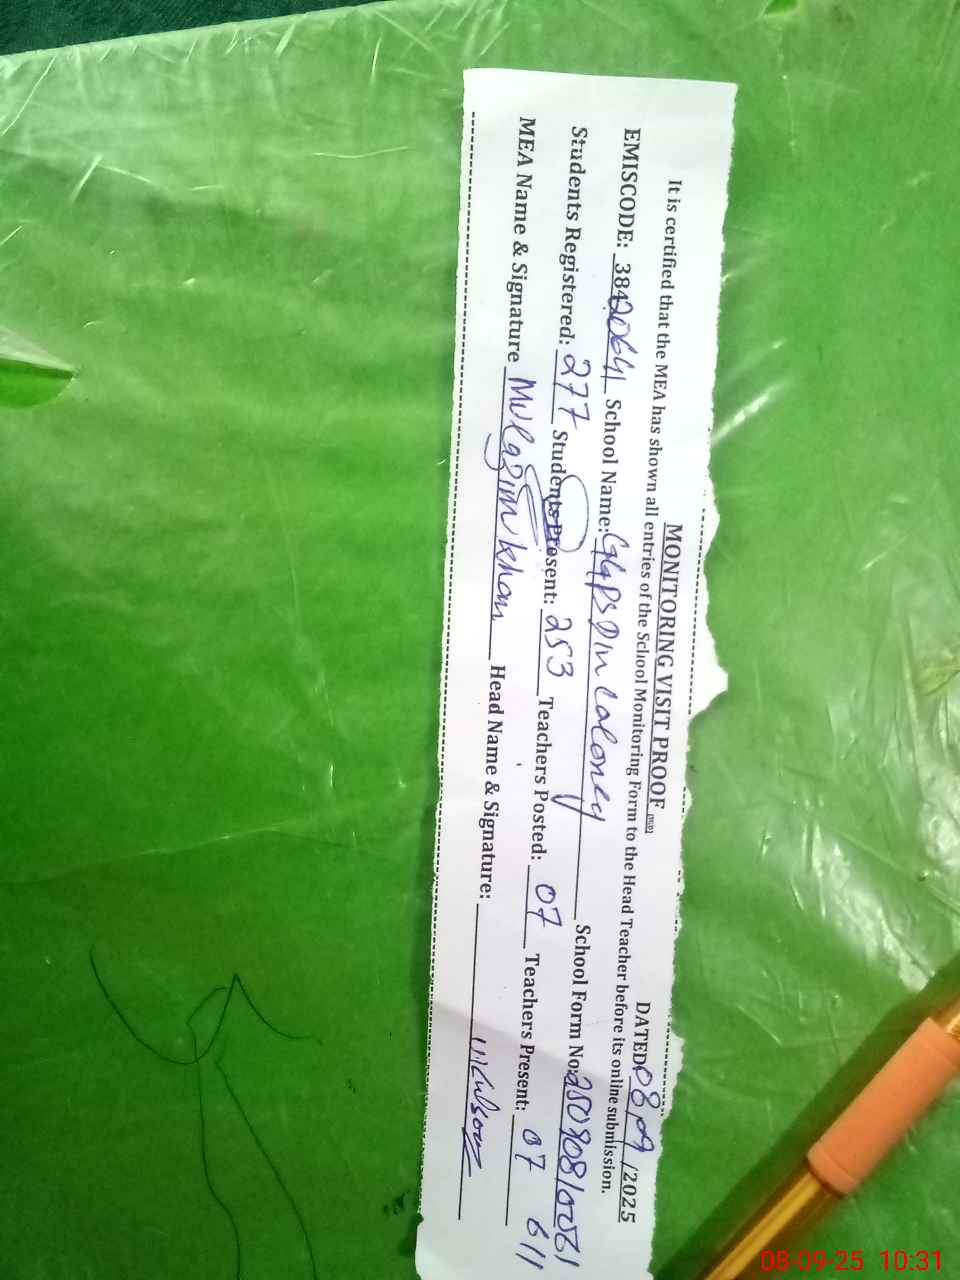 MONITORING VISIT PROOF
DATED 08/09/2025
It is certified that the MEA has shown all entries of the School Monitoring Form to the Head Teacher before its online submission.
EMISCODE: 38420641 School Name: GGPS Din Coloney School Form No:
Students Registered: 277 Students Present: 253 Teachers Posted: 07 Teachers Present: 07
MEA Name & Signature Mulazim khan Head Name & Signature:
08-09-25 10:31